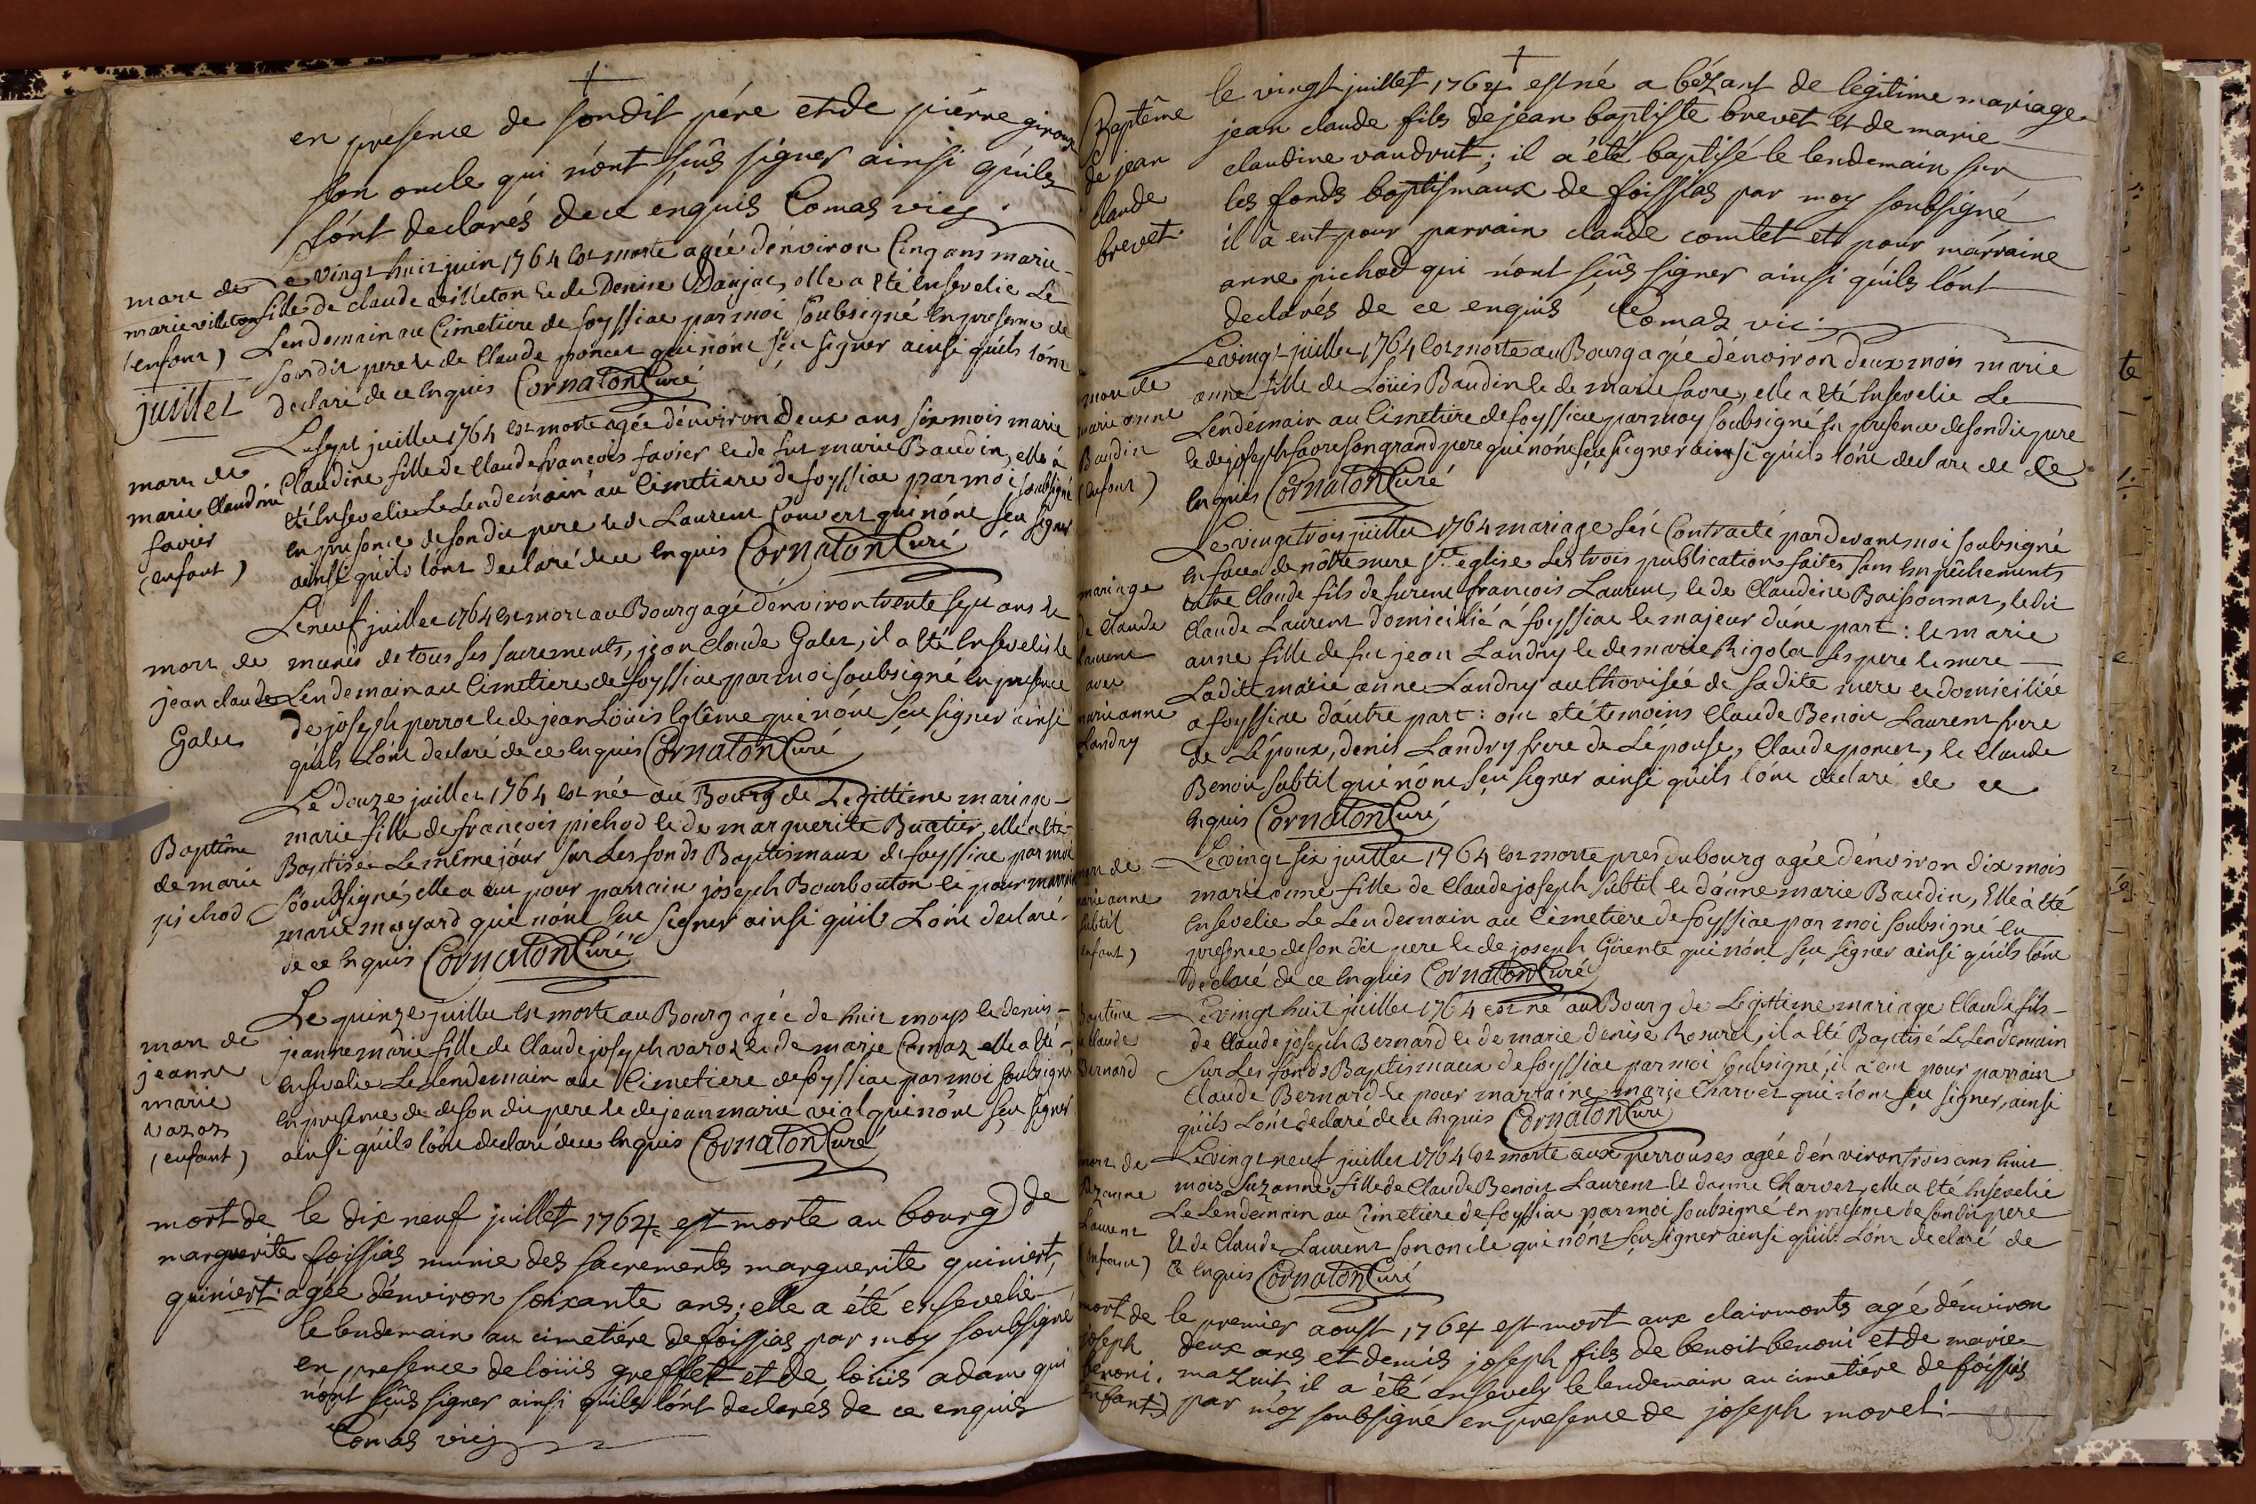 en presence de sondit pére et de piérre giroux
son oncle qui n'ont sçûs signer ainsi qu'ils
l'ónt declarés de ce enquis Comas vic.
mort de
marie villeton
(enfant)
Le vingt huit juin 1764 est morte agée d'énviron Cinq ans marie
fille de claude villeton et de Denise Danjac, elle a été Ensevelie Le
Lendemain au Cimetiere de foyssiac par moi soubsigné En presence de
son dit pere et de Claude poncet qui n'ónt sçu signer ainsi qu'ils l'ónt
declaré de ce Enquis Cornaton Curé
juillet
mort de
marie Claudine
favier
(enfant)
Le sept juillet 1764 est morte agée d'énviron Deux ans six mois marie
Claudine fille de Claude françois favier et de fut marie Baudin, elle á
été Ensevelie Le Lendemain au Cimetiere de foyssiac par moi soubsigné
En presence de son dit pere et de Laurent Couvert qui n'ónt sçu signer
ainsi qu'ils l'ónt declaré de ce Enquis Cornaton Curé
mort de
jean claude
Galet
Le neuf juillet 1764 est mort au Bourg agé d'énviron trente sept ans et
munis de tous ses sacrements, jean Claude Galet, il a été Ensevelis le
Lendemain au Cimetiere de foyssiac par moi soubsigné En presence
de joseph perrot et de jean Loüis Eglême qui n'ónt sçu signer ainsi
qu'ils L'ónt declaré de ce Enquis Cornaton Curé
Baptême
de marie
pichod
Le douze juillet 1764 est née au Bourg de Legittime mariage
marie fille de françois pichod et de marguerite Buatier, elle a été
Baptisée Le même jóur sur Les fonds Baptismaux de foyssiac par moi
Soubsigné, elle a eut pour parrain joseph Bourbouton et pour marraine
marie moyard qui n'ónt sçu signer ainsi qu'ils L'ónt declaré
de ce Enquis Cornaton Curé
mort de
jeanne
marie
varoz
(enfant)
Le quinze juillet est morte au Bourg agée de huit moys et demis
jeanne marie fille de Claude joseph varoz et de marie Comaz elle a été
Ensevelie Le Lendemain au Cimetiere de foyssiac par moi soubsigné
En presence de de son dit pere et de jean marie vial qui n'ónt sçu signer
ainsi qu'ils l'ónt declaré de ce Enquis Cornaton Curé
mort de
marguerite
quiniert
le dix neuf juillet 1764 est morte au bourg de
foissias munie des sacrements marguerite quiniert,
agée d'énviron soixante ans; elle a été ensevelie
le lendemain au cimetiére de foissias par moy soubsigné
en presence de loüis greffet et de loüis adam qui
n'ónt sçûs signer ainsi qu'ils l'ónt declarés de ce enquis
Comas vic
Baptême
de jean
claude
brevet.
le vingt juillet 1764 est né a bézant de legitime mariage
jean claude fils de jean baptiste brevet et de marie
claudine vaudrut; il a été baptisé le lendemain sur
les fonds baptismaux de foissias par moy soubsigné
il a eut pour parrain claude comtet et pour márraine
anne pichod qui n'ónt sçûs signer ainsi qu'ils l'ónt
declarés de ce enquis Comas vic.
mort de
marie anne
Baudin
(enfant)
Le vingt juillet 1764 est morte au Bourg agée d'énviron deux mois marie
anne fille de Loüis Baudin et de marie favre, elle a été Ensevelie Le
Lendemain au Cimetiere de foyssiac par moy soubsigné En presence de son dit pere
et de joseph favre son grand pere qui n'ónt sçu signer ainsi qu'ils l'ónt declaré de ce
Enquis Cornaton Curé
mariage
de Claude
laurent
avec
marie anne
Landry
Le vingt trois juillet 1764 mariage s'ést Contracté pardevant moi soubsigné
En face de nôtre mere Ste eglise Les trois publications faites sans Empêchements
entre Claude fils de furent françois Laurent, et de Claudine Boissonnat, ledit
Claude Laurent domicilié á foyssiac et majeur d'úne part: et marie
anne fille de fut jean Landry et de marie Rigolet ses pere et mere
Ladite marie anne Landry authorisée de sadite mere et domiciliée
a foyssiac d'áutre part: ont été témoins Claude Benoit Laurent frere
de L'époux, denis Landry frere de L'épouse, Claude poncet, et Claude
Benoit subtil qui n'ónt sçu signer ainsi qu'ils l'ónt declaré de ce
Enquis Cornaton Curé
mort de
marie anne
subtil
(enfant)
Le vingt six juillet 1764 est morte pres du bourg agée d'énviron dix mois
marie anne fille de Claude joseph subtil et d'ánne marie Baudin, Elle á été
Ensevelie Le Lendemain au Cimetiere de foyssiac par moi soubsigné En
presence de son dit pere et de joseph Girente qui n'ónt sçu signer ainsi qu'ils l'ónt
declaré de ce Enquis Cornaton Curé
Baptême
de Claude
Bernard
Le vingt huit juillet 1764 est né au Bourg de Légittime mariage Claude fils
de Claude joseph Bernard et de marie denise Rosuret, il a été Baptisé Le Lendemain
sur Les fonds Baptismaux de foyssiac par moi soubsigné, il a eut pour parrain
Claude Bernard et pour marraine marie Charvet qui n'ónt sçu signer, ainsi
qu'ils L'ónt declaré de ce Enquis Cornaton Curé
mort de
Suzanne
Laurent
(enfant)
Le vingt neuf juillet 1764 est morte aux perrouses agée d'énviron trois ans huit
mois Suzanne fille de Claude Benoit Laurent et d'anne Charvet, elle a été Ensevelie
Le Lendemain au Cimetiere de foyssiac par moi soubsigné En presence de son dit pere
Et de Claude Laurent son oncle qui n'ónt sçu signer ainsi qu'ils L'ónt declaré de
Ce Enquis Cornaton Curé
mort de
joseph
benoni.
(enfant)
le premier aoust 1764 est mort aux clairmonts agé d'énviron
deux ans et demis joseph fils de benoit benoni et de marie
mazuit, il a été ensevely le lendemain au cimetiére de foissias
par moy soubsigné en presence de joseph morel